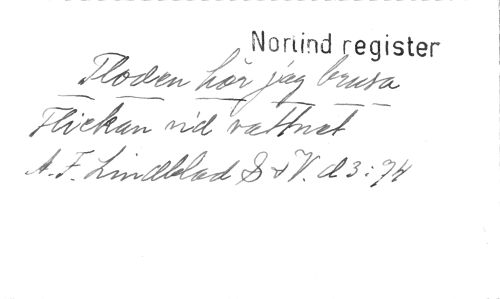 Norlind register
Floden hör jag brusa
Flickan vid vattnet
A. F. Lindblad S & V. d. 3: 74